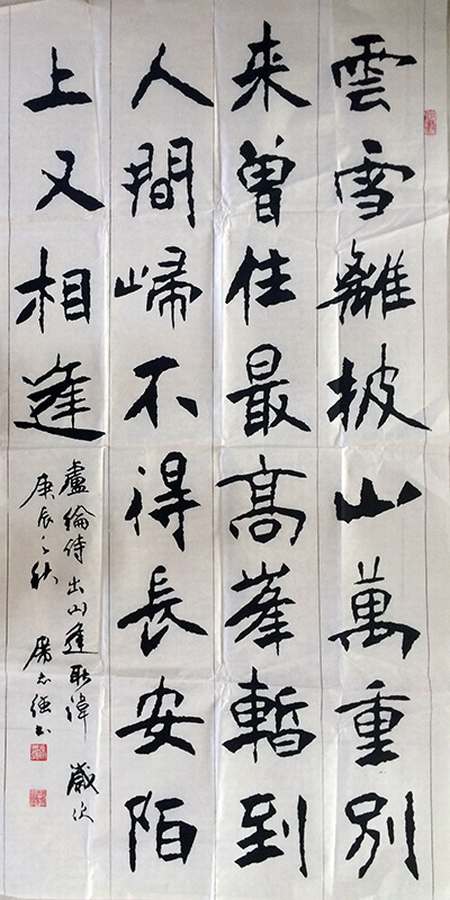 雲雪離披山萬重別
来曾住最高峯暫到
人間㱕不得長安陌
上又相逢
盧綸侍出山逢耿湋 歲次
庚辰之秋 志強書